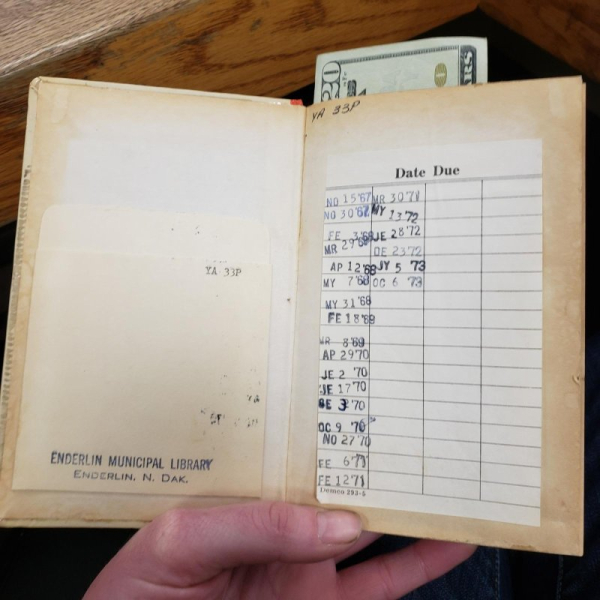 20
YA 33P
YA 33P
ENDERLIN MUNICIPAL LIBRARY
ENDERLIN, N. DAK.
Date Due
NO 15 '67
NO 30 '67
FE 3 '68
MR 29 '68
AP 12 '68
MY 7 '68
MY 31 '68
FE 18 '69
MR 8 '69
AP 29 '70
JE 2 '70
JE 17 '70
DE 3 '70
OC 9 '70
NO 27 '70
FE 6 '71
FE 12 '71
MR 30 '71
MY 13 '72
JE 28 '72
DE 23 '72
JY 5 '73
OC 6 '73
Demco 293-5